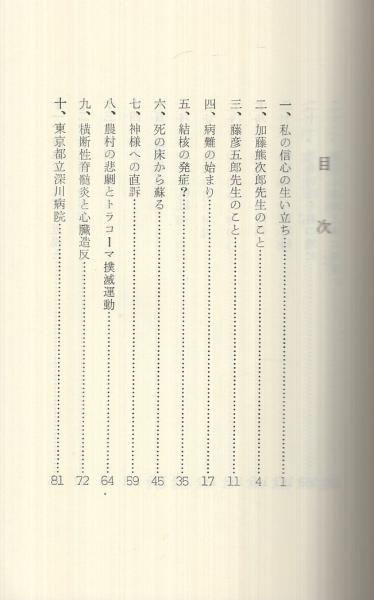 目次
一、私の信心の生い立ち…………1
二、加藤熊次郎先生のこと…………4
三、藤彦五郎先生のこと…………11
四、病難の始まり…………17
五、結核の発症？…………35
六、死の床から蘇る…………45
七、神様への直訴…………59
八、農村の悲劇とトラコーマ撲滅運動…………64
九、横断性脊髄炎と心臓造反…………72
十、東京都立深川病院…………81